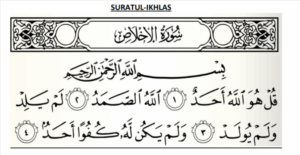 SURATUL-IKHLAS
سُورَةُ الْإِخْلَاصِ
بِسْمِ اللَّهِ الرَّحْمَٰنِ الرَّحِيمِ
قُلْ هُوَ اللَّهُ أَحَدٌ ١ اللَّهُ الصَّمَدُ ٢ لَمْ يَلِدْ
وَلَمْ يُولَدْ ٣ وَلَمْ يَكُن لَّهُ كُفُوًا أَحَدٌ ٤